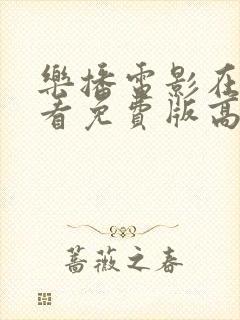 樂播雷影在
看免費版高
蔷薇之春